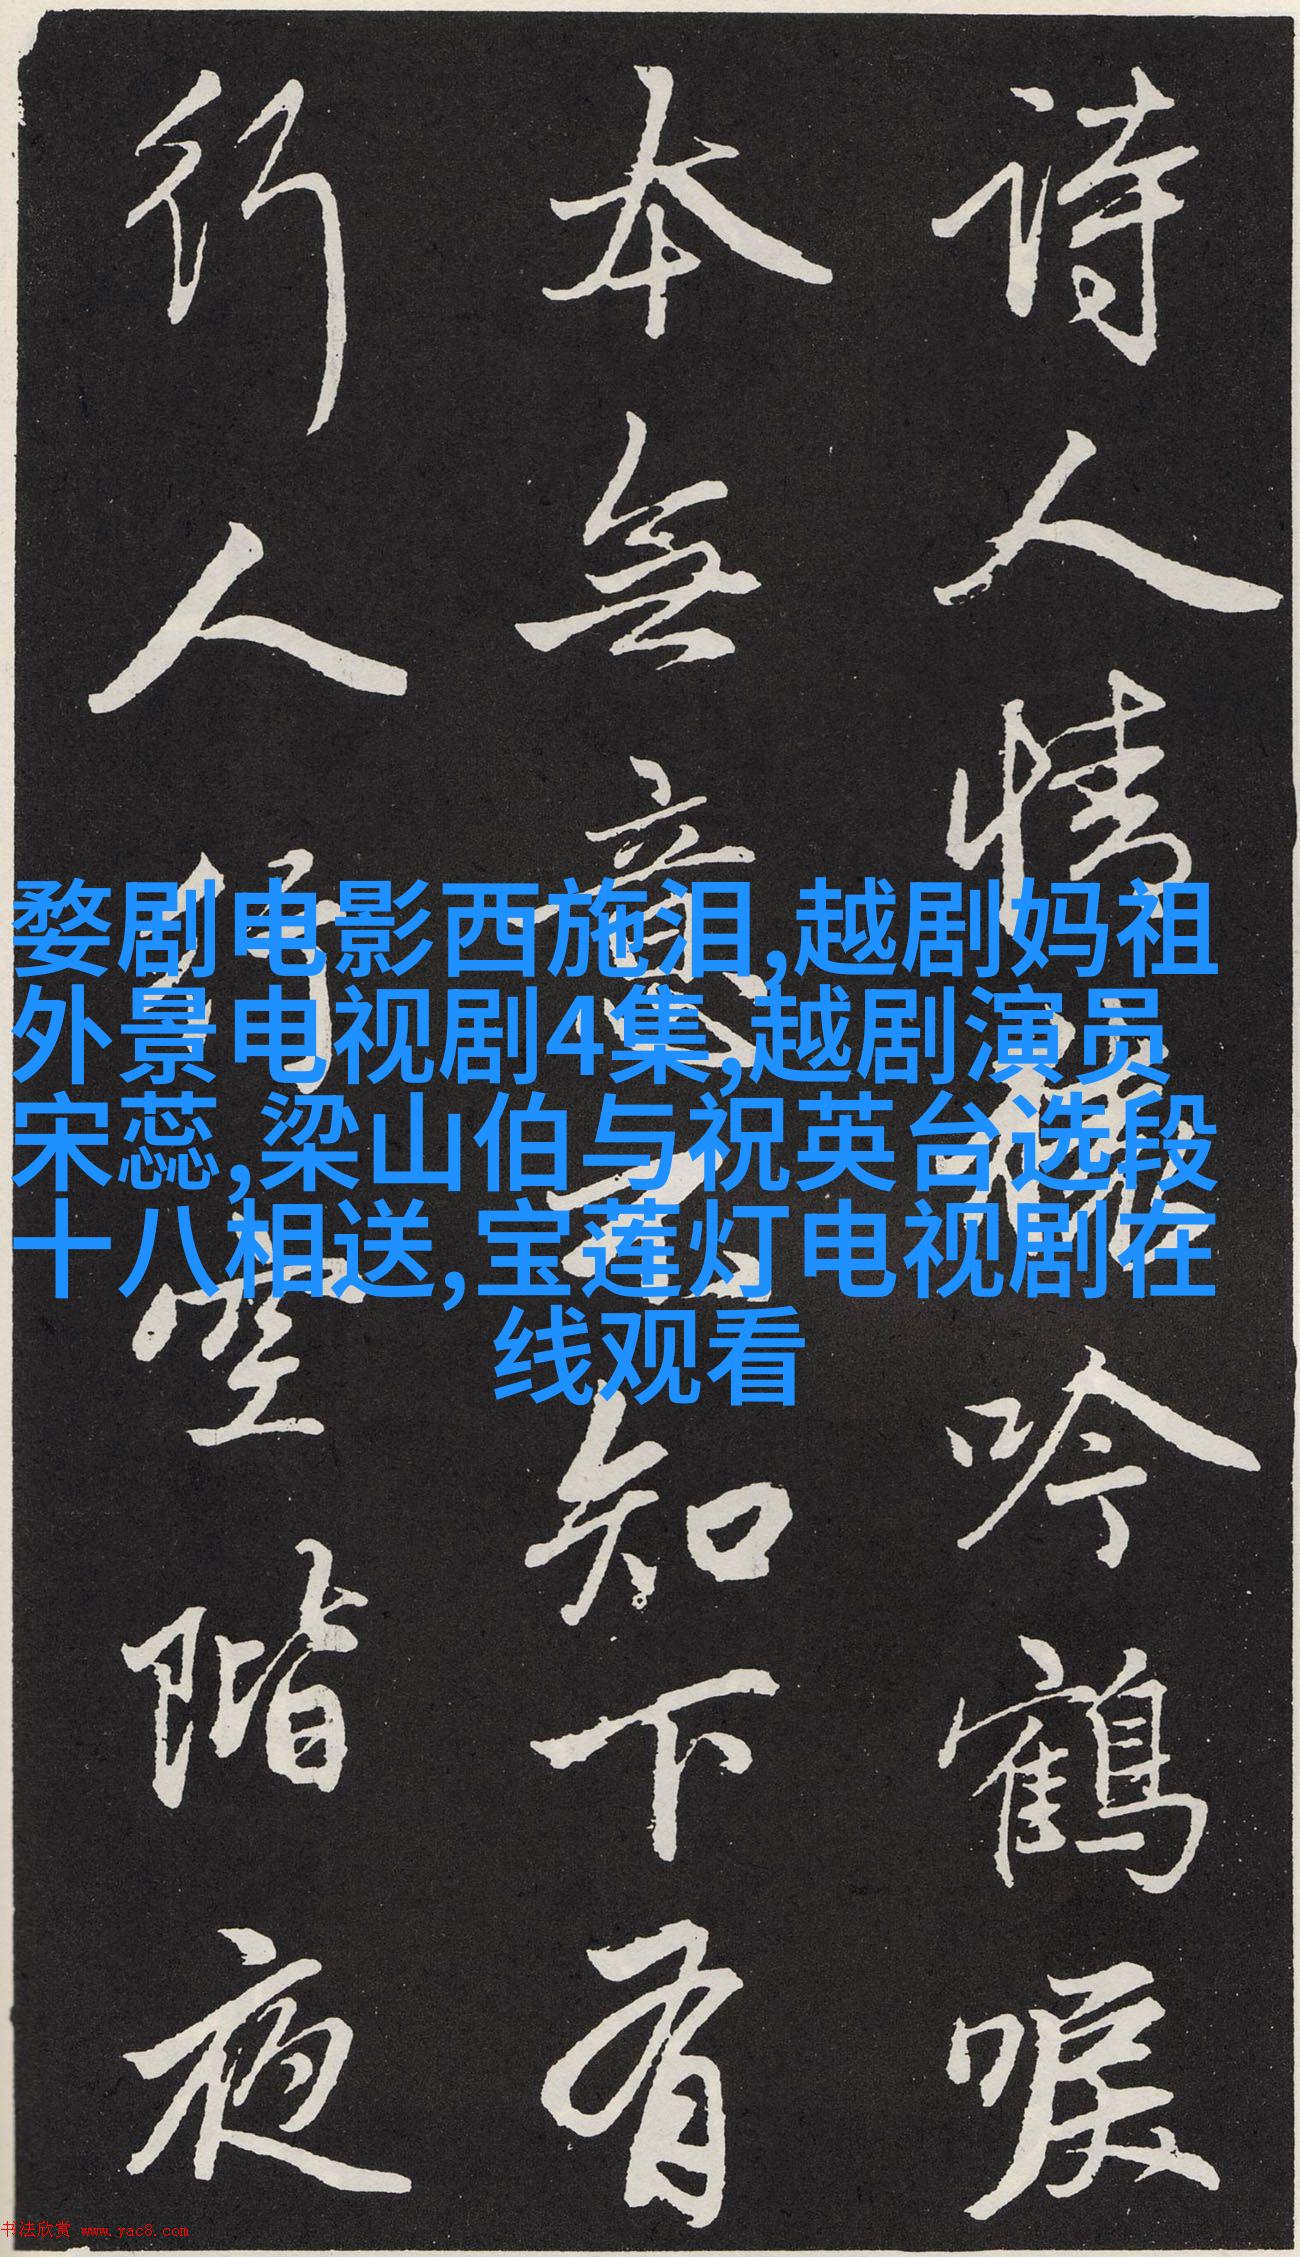 诗人情□吟鹤唳
本无意□知下有
行人行空阶夜
婺剧电影西施泪,越剧妈祖
外景电视剧4集,越剧演员
宋蕊,梁山伯与祝英台选段
十八相送,宝莲灯电视剧在
线观看
书法欣赏 www.yac8.com